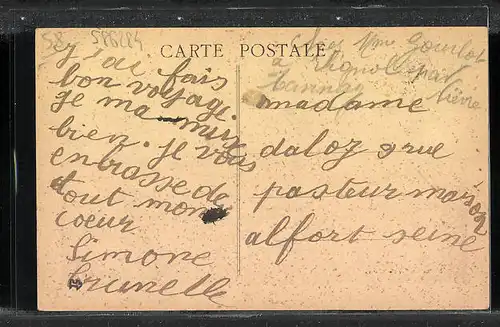 58 598284
CARTE POSTALE
j'ai fais
bon voyage.
je ma muse
bien. je vous
enbrasse de
tout mon
coeur
Simone
Brunelle
chez Mme Gourlot
a
tannay
madame
daloz 9 rue
pasteur maison
alfort seine